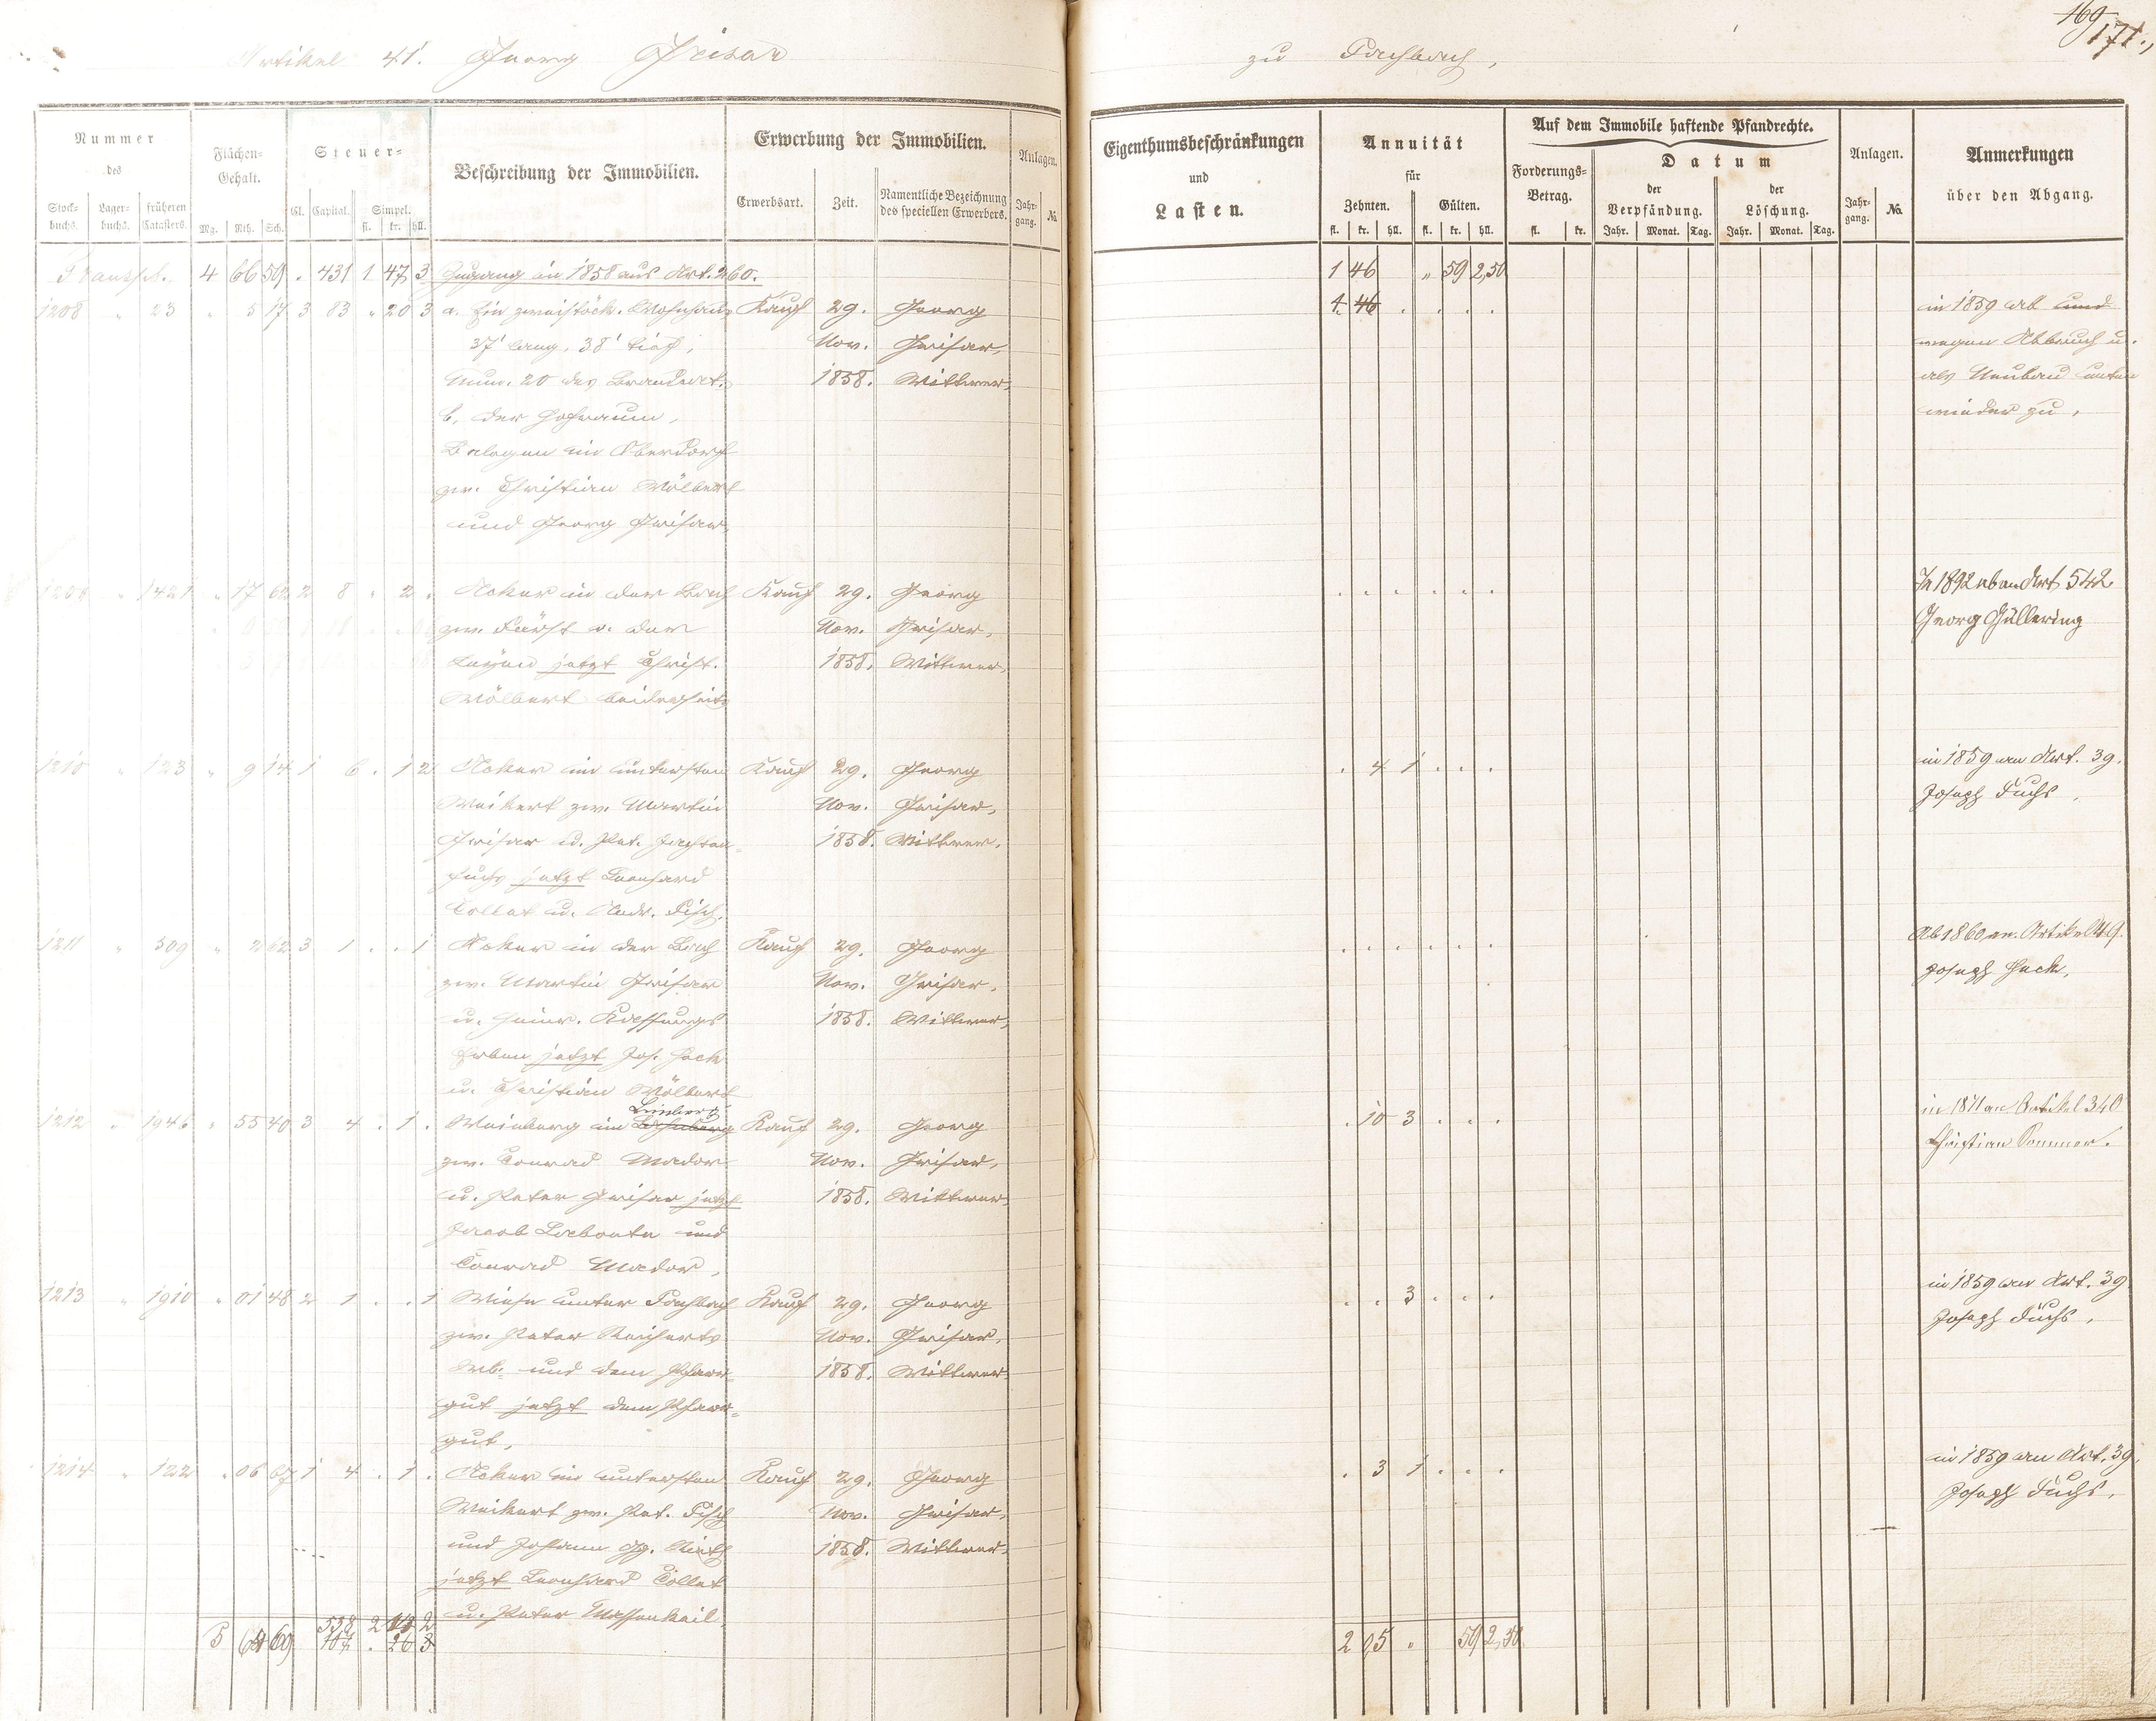 Artikel 41. Georg Grisar
zu Fachbach,
169
171.
Nummer
des
Stock-
buchs.
Lager-
buchs.
früheren
Catasters.
Flächen-
Gehalt.
Mg. Rth. Sch.
Steuer-
Cl. Capital. Simpel.
fl. kr. hll.
Beschreibung der Immobilien.
Erwerbung der Immobilien.
Erwerbsart. Zeit.
Namentliche Bezeichnung
des speciellen Erwerbers.
Anlagen.
Jahr-
gang.
No.
Eigenthumsbeschränkungen
und
Lasten.
Annuität
für
Zehnten. Gülten.
fl. kr. hll. fl. kr. hll.
Auf dem Immobile haftende Pfandrechte.
Forderungs-
Betrag.
fl. kr.
Datum
der
Verpfändung.
Jahr. Monat. Tag.
der
Löschung.
Jahr. Monat. Tag.
Anlagen.
Jahr-
gang.
No.
Anmerkungen
über den Abgang.
Transpt. 4 66 59 . 431 1 47 3 Zugang in 1858 aus Art. 260. 1 46 „ 59 2,50
1208 „ 23 „ 5 17 3 83 „ 20 3 a. Ein zweistöck. Wohnhaus Kauf 29. Georg 1. 46 . . . . in 1859 ab und
37' lang, 38' tief, Nov. Grisar, wegen Abbruch u.
Num. 20 des Brandcat. 1858. Wittwer, als Neubau unten
b. der Hofraum, wieder zu,
Belegen im Oberdorf
zw. Christian Wölbert
und Georg Grisar,
1209 „ 1421 „ 17 62 2 8 „ 2 . Acker in der Bach Kauf 29. Georg . . . . . . In 1892 ab an Art 542
zw. Fürst v. der Nov. Grisar, Georg Güllering
Leyen jetzt Christ. 1858. Wittwer,
Wölbert beiderseits
1210 „ 123 „ 9 14 1 6 . 1 2 Acker im untersten Kauf 29. Georg . 4 1 . . . in 1859 an Art. 39.
Weikert zw. Martin Nov. Grisar, Joseph Fuchs,
Grisar u. Pet. 1858. Wittwer,
jetzt Leonhard
Collet u. Andr. Fisch.
1211 „ 509 „ 2 62 3 1 . . 1 Acker in der Bach Kauf 29. Georg . . . . . . Ab 1860 an Artikel 49.
zw. Martin Grisar Nov. Grisar, Joseph Hack,
u. Heinr. 1858. Wittwer,
Erben jetzt Jos. Hack
u. Christian Wölbert
1212 „ 1946 „ 55 40 3 4 . 1 . Weinberg im Leinberg Kauf 29. Georg . 10 3 . . . in 1871 an Artikel 340
zw. Conrad Mador Nov. Grisar, Christian Sommer.
u. Peter Grisar jetzt 1858. Wittwer,
Jacob Lebonte und
Conrad Mador,
1213 „ 1910 „ 01 48 2 1 . . 1 Wiese unter Fachbach Kauf 29. Georg . . 3 . . . in 1859 an Art. 39
zw. Peter Reicherts Nov. Grisar, Joseph Fuchs,
Erb. und dem Pfarr- 1858. Wittwer,
gut jetzt dem Pfarr-
gut,
1214 „ 122 „ 06 67 1 4 . 1 . Acker im untersten Kauf 29. Georg . 3 1 . . . in 1859 an Art. 39.
Weikert zw. Pet. Fisch Nov. Grisar, Joseph Fuchs,
und Johann Gg. 1858. Wittwer,
jetzt Leonhard Collet
u. Peter Massenkeil,
538 2 14 2
5 64 69 107 . 26 3 2 05 „ 59 2,50